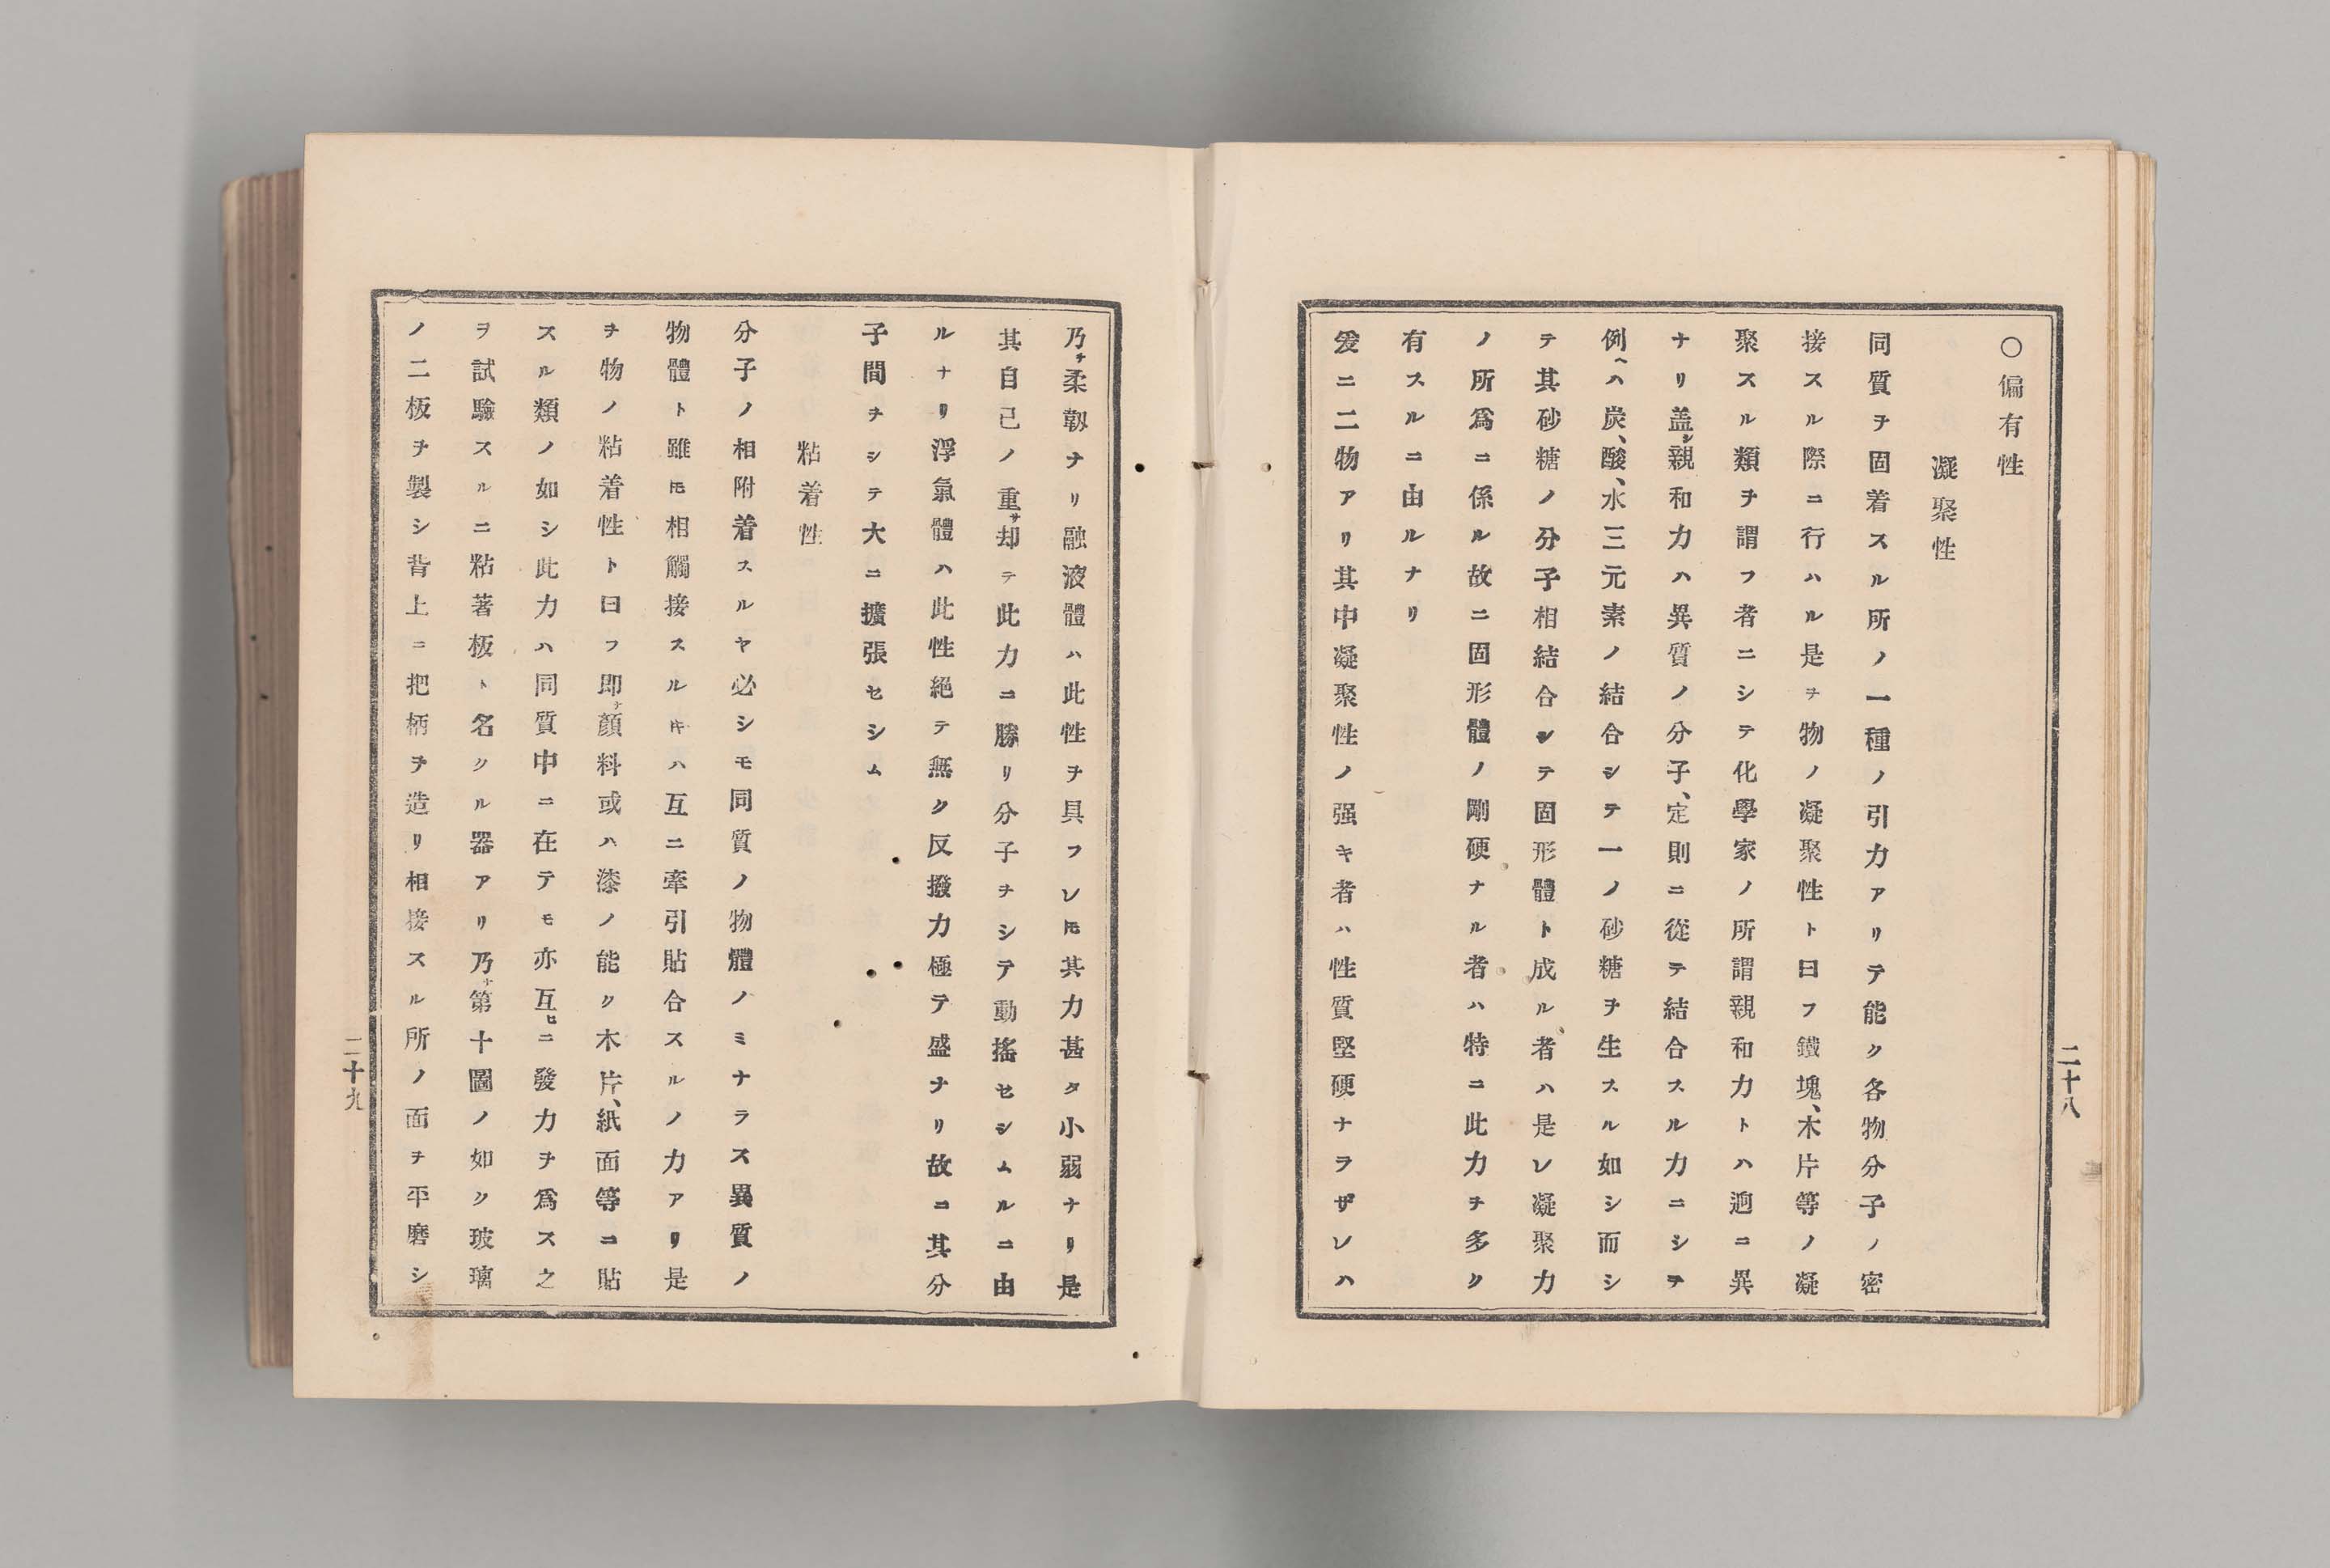 〇偏有性
凝聚性
同質ヲ固着スル所ノ一種ノ引力アリテ能ク各物分子ノ密
接スル際ニ行ハル是ヲ物ノ凝聚性ト曰フ鐵塊、木片等ノ凝
聚スル類ヲ謂フ者ニシテ化學家ノ所謂親和力トハ逈ニ異
ナリ盖シ親和力ハ異質ノ分子、定則ニ從テ結合スル力ニシテ
例ヘハ炭、酸、水三元素ノ結合シテ一ノ砂糖ヲ生スル如シ而シ
テ其砂糖ノ分子相結合シテ固形體ト成ル者ハ是レ凝聚力
ノ所爲ニ係ル故ニ固形體ノ剛硬ナル者ハ特ニ此力ヲ多ク
有スルニ由ルナリ
爰ニ二物アリ其中凝聚性ノ强キ者ハ性質堅硬ナラザレハ
二十八
乃チ柔韌ナリ融液體ハ此性ヲ具フレ𪜈其力甚タ小弱ナリ是
其自己ノ重サ却テ此力ニ勝リ分子ヲシテ動搖セシムルニ由
ルナリ浮氣體ハ此性絕テ無ク反撥力極テ盛ナリ故ニ其分
子間ヲシテ大ニ擴張セシム
粘着性
分子ノ相附着スルヤ必シモ同質ノ物體ノミナラス異質ノ
物體ト雖𪜈相觸接スルキハ互ニ牽引貼合スルノ力アリ是
ヲ物ノ粘着性ト曰フ即チ顔料或ハ漆ノ能ク木片、紙面等ニ貼
スル類ノ如シ此力ハ同質中ニ在テモ亦互ヒニ發力ヲ爲ス之
ヲ試驗スルニ粘著板ト名クル器アリ乃チ第十圖ノ如ク玻璃
ノ二板ヲ製シ背上ニ把柄ヲ造リ相接スル所ノ面ヲ平磨シ
二十九